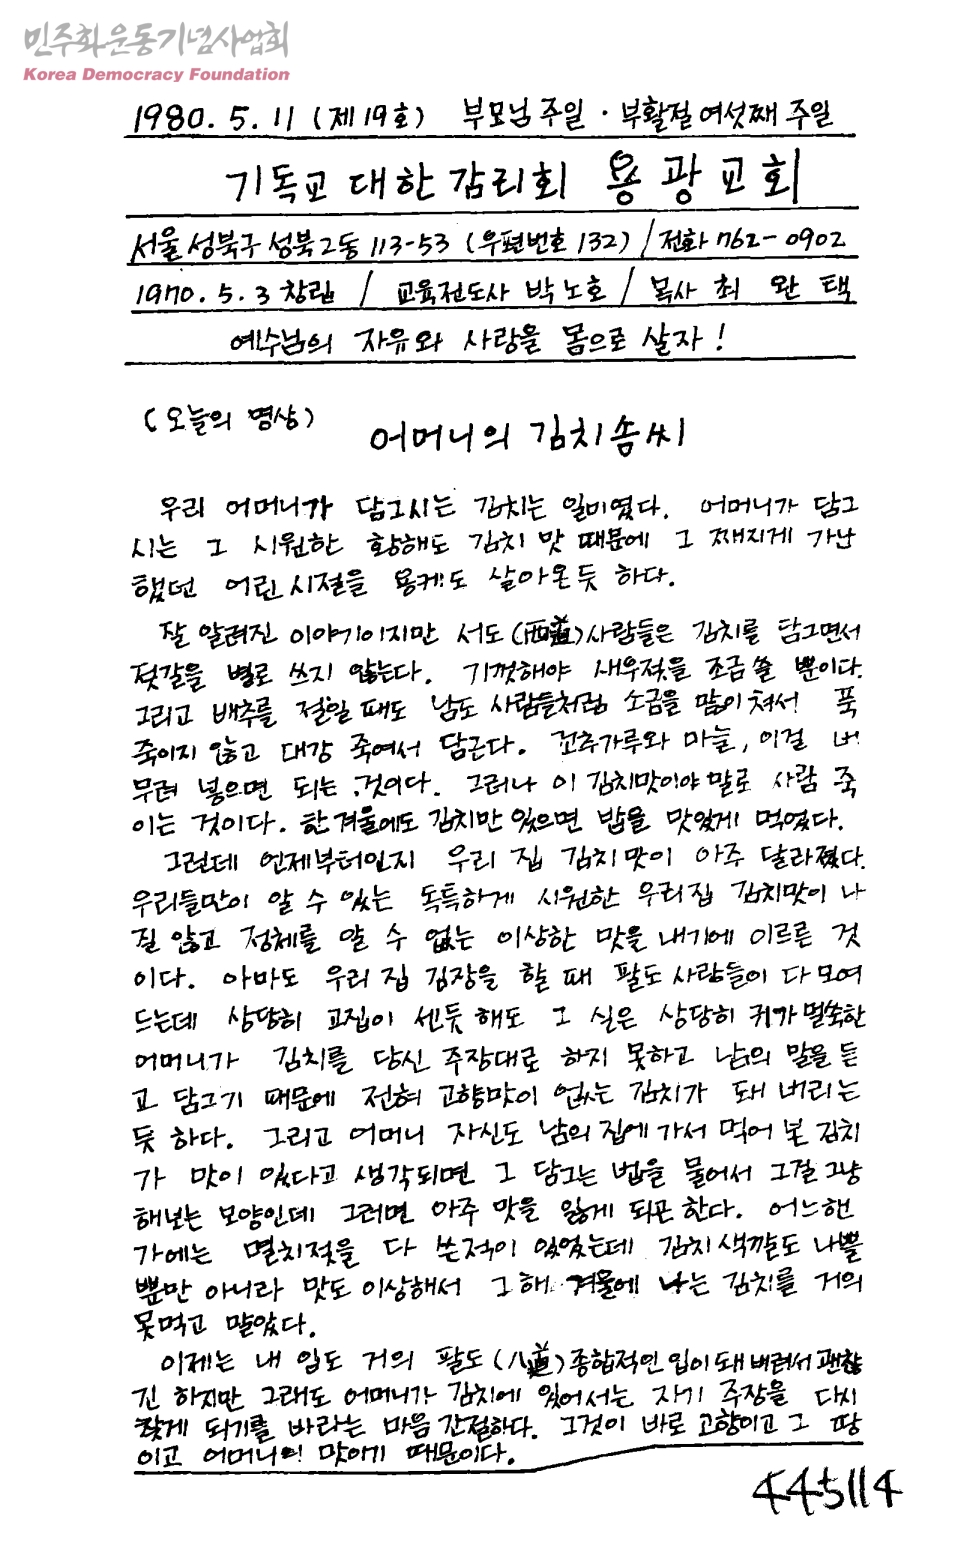 민주화운동기념사업회
Korea Democracy Foundation
1980. 5. 11 (제19호) 부모님 주일 · 부활절 여섯째 주일
기독교 대한 감리회 용광교회
서울 성북구 성북2동 113-53 (우편번호 132) / 전화 762-0902
1970. 5. 3 창립 / 교육전도사 박노호 / 목사 최 완 택
예수님의 자유와 사랑을 몸으로 살자!
(오늘의 명상)
어머니의 김치솜씨
우리 어머니가 담그시는 김치는 일미였다. 어머니가 담그
시는 그 시원한 황해도 김치 맛 때문에 그 째지게 가난
했던 어린시절을 용케도 살아온듯 하다.
잘 알려진 이야기이지만 서도(西道)사람들은 김치를 담그면서
젓갈을 별로 쓰지 않는다. 기껏해야 새우젓을 조금쓸 뿐이다.
그리고 배추를 절일 때도 남도 사람들처럼 소금을 많이 쳐서 푹
죽이지 않고 대강 죽여서 담근다. 고추가루와 마늘, 이걸 버
무려 넣으면 되는 것이다. 그러나 이 김치맛이야말로 사람 죽
이는 것이다. 한겨울에도 김치만 있으면 밥을 맛있게 먹었다.
그런데 언제부터인지 우리 집 김치맛이 아주 달라졌다.
우리들만이 알 수 있는 독특하게 시원한 우리집 김치맛이 나
질 않고 정체를 알 수 없는 이상한 맛을 내기에 이르른 것
이다. 아마도 우리 집 김장을 할 때 팔도 사람들이 다 모여
드는데 상당히 고집이 센듯 해도 그 실은 상당히 귀가 멀쑥한
어머니가 김치를 당신 주장대로 하지 못하고 남의 말을 듣
고 담그기 때문에 전혀 고향맛이 없는 김치가 돼 버리는
듯 하다. 그리고 어머니 자신도 남의 집에 가서 먹어 본 김치
가 맛이 있다고 생각되면 그 담그는 법을 물어서 그걸 그냥
해보는 모양인데 그러면 아주 맛을 잃게 되곤 한다. 어느핸
가에는 멸치젓을 다 쓴적이 있었는데 김치 색깔도 나쁠
뿐만 아니라 맛도 이상해서 그 해 겨울에 나는 김치를 거의
못먹고 말았다.
이제는 내 입도 거의 팔도(八道)종합적인 입이 돼 버려서 괜찮
긴 하지만 그래도 어머니가 김치에 있어서는 자기 주장을 다시
찾게 되기를 바라는 마음 간절하다. 그것이 바로 고향이고 그 땅
이고 어머니의 맛이기 때문이다.
445114